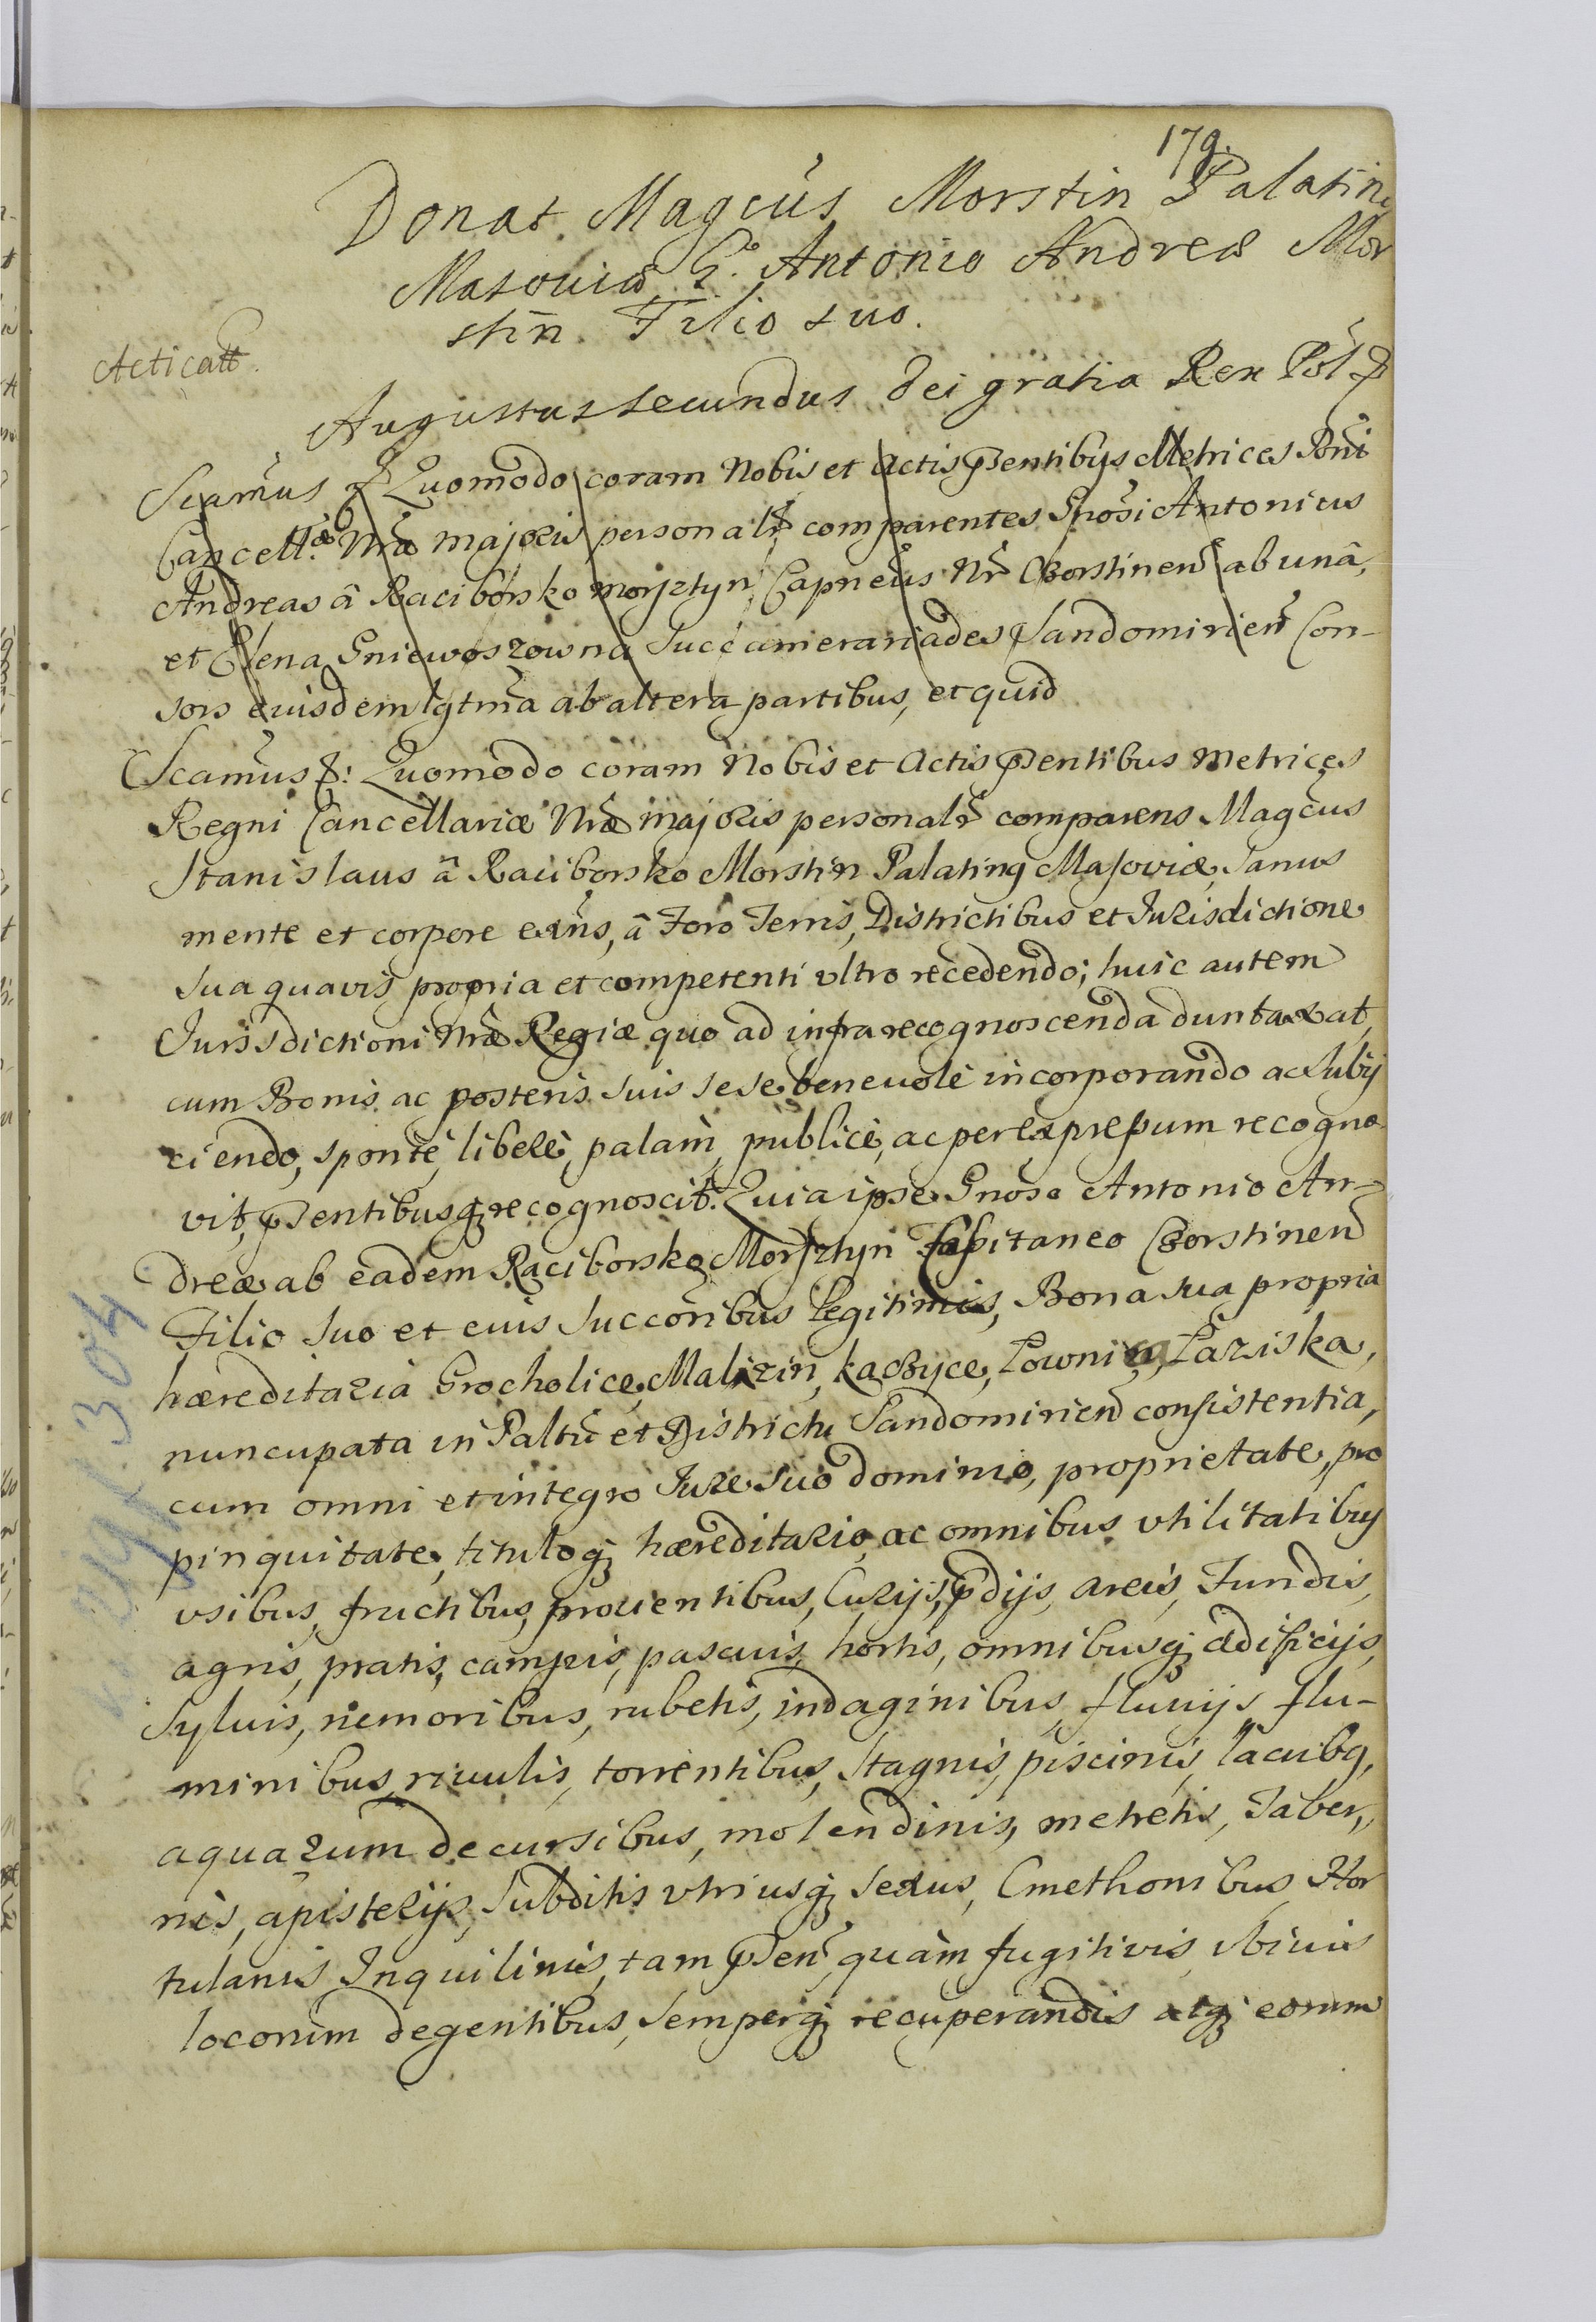 179.
Donat. Magcus Morstin Palatin
Masoviæ G. Antonio Andreæ Mor
stin. Filio suo.
Acticatt.
Augustus secundus Dei gratia Rex Pol
Scamus Quomodo coram Nobis et actis pñtibus Metrices Rñi
Cancellæ Nræ majoris personalr comparentes Gnosi Antonius
Andreas â Raciborsko Morsztyn Capneus Nr Czorstinen ab unâ,
et Elena Gniewoszowna Succamerariades Sandomirien Con-
sors eiusdem lgtma ab altera partibus, et quid
Scamus &: Quomodo coram Nobis et Actis pñtibus Metrices
Regni Cancellariæ Nræ majoris personalr comparens Magcus
Stanislaus â Raciborsko Morstin Palatinq Masoviæ, Sanus
mente et corpore exns, â Foro Terris, Districtibus et Iurisdictione
sua quavis propria et competenti ultro recedendo; huic autem
Jurisdictioni Nræ Regiæ quo ad infra recognoscenda duntaxat,
cum Bonis ac posteris suis sese benevolè incorporando ac subij
ciendo, spontè, liberè, palàm, publicè, ac per expressum recogno
vit, pñtibusq recognoscit. Quia ipse Gnoso Antonio An-
dreæ ab eadem Raciborsko Morsztyn Capitaneo Czorstinen
Filio suo et eius succoribus Legitimis, Bona sua propria
hæreditaria Grocholice, Malizin, kaczyce, Łownica, Łaziska,
nuncupata in Paltu et Districtu Sandomirien consistentia,
cum omni et integro Iure suo dominio, proprietate, pro
pinquitate, tituloq hæreditario, ac omnibus utilitatibus
usibus, fructibus, provientibus, Curijs, pdijs, areis, Fundis,
agris, pratis, campis, pascuis, hortis, omnibusq ædificijs,
Syluis, nemoribus, rubetis, indaginibus, fluvijs, flu-
minibus, rivulis, torrentibus, stagnis, piscinis, lacubq,
aquarum decursibus, molendinis, metretis, Taber,,
nis, apisterijs, Subditis utriusq sexus, Cmethonibus, Hor
tulanis Inquilinis, tam pñen, quàm fugitivis, ubivis
locorum degentibus, semperq recuperandis atq eorum